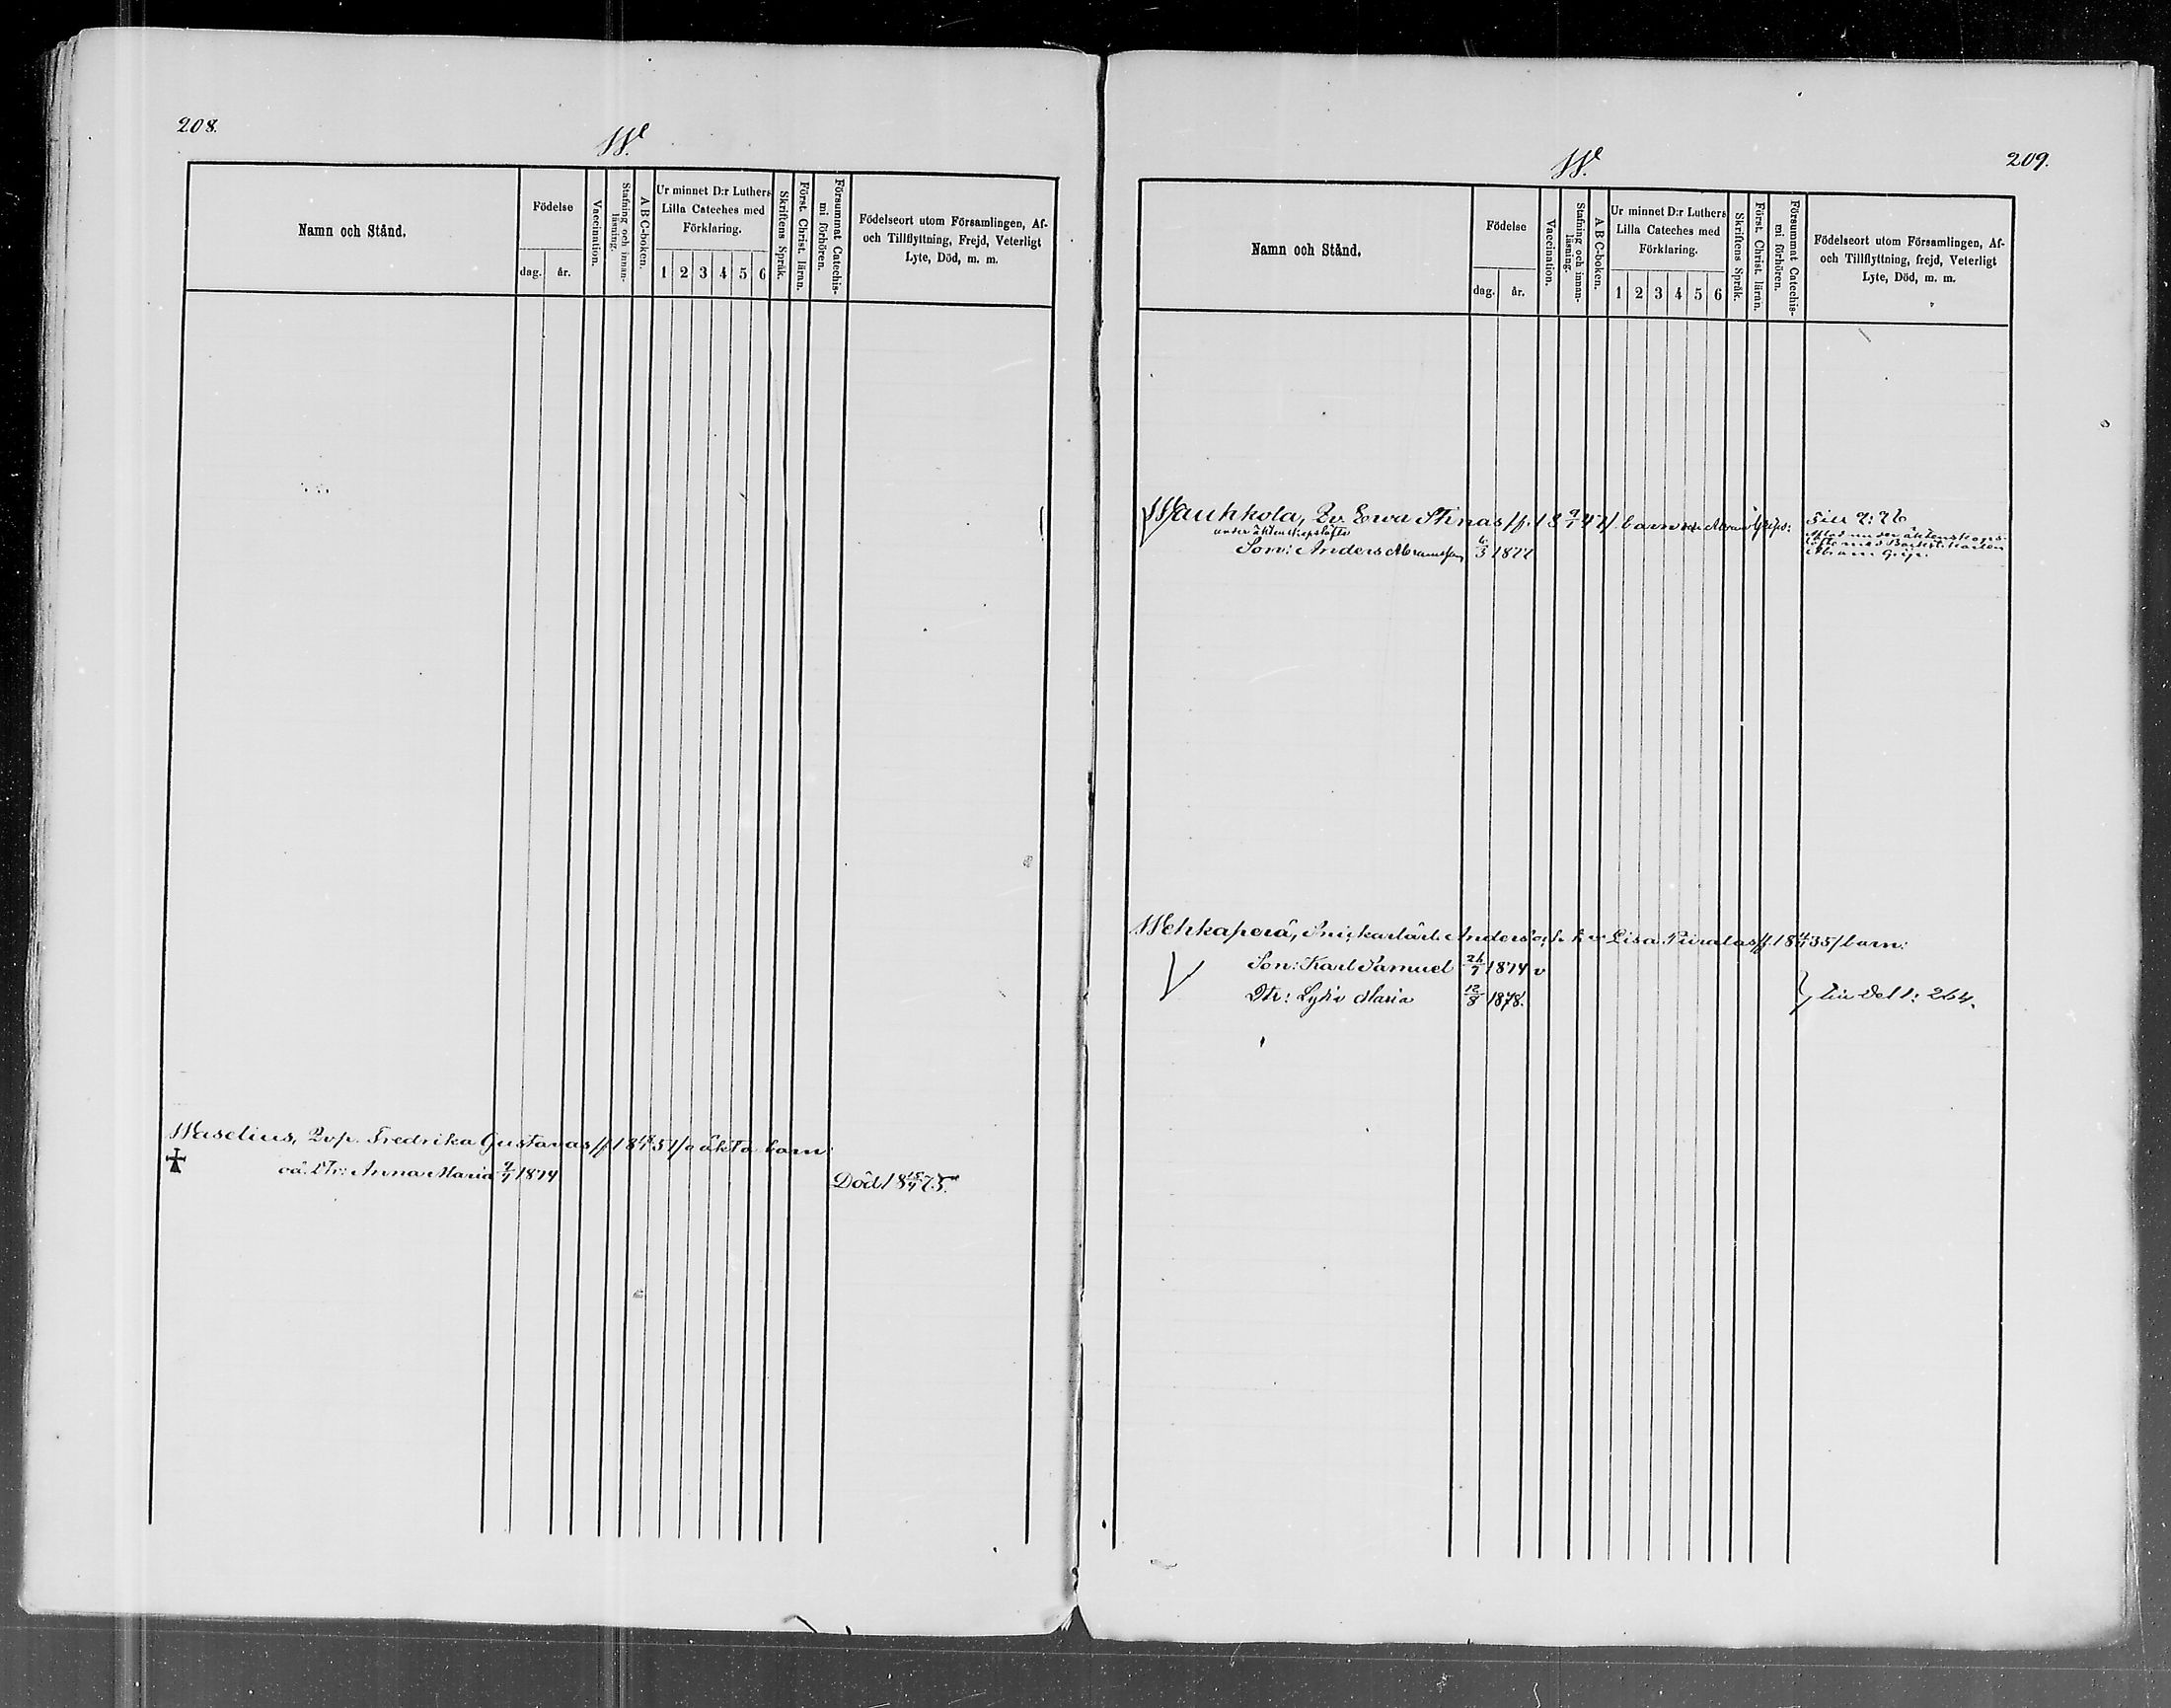 208.
W.
Namn och Stånd.
Födelse
dag. år.
Vaccination.
Stafning och innan-
läsning.
A B C-boken.
Ur minnet D:r Luthers
Lilla Cateches med
Förklaring.
1 2 3 4 5 6
Skriftens Språk.
Först. Christ. läran.
Försummat Catechis-
mi förhören.
Födelseort utom Församlingen, Af-
och Tillflyttning, Frejd, Veterligt
Lyte, Död, m. m.
Waselius, Qvp. Fredrika Gustavas oäkta barn:
oä. Dtr: Anna Maria 1874
Död 18 15/4 75.
W.
209.
Namn och Stånd.
Födelse
dag. år.
Vaccination.
Stafning och innan-
läsning.
A B C-boken.
Ur minnet D:r Luthers
Lilla Cateches med
Förklaring.
1 2 3 4 5 6
Skriftens Språk.
Först. Christ. läran.
Försummat Catechis-
mi förhören.
Födelseort utom Församlingen, Af-
och Tillflyttning, frejd, Veterligt
Lyte, Död, m. m.
Wauhkola, Qv. Ewa Stinas barn
under äktenskapslöfte
Son: Anders Abramsson 6/3 1877
Wehkaperä, Snickarlärl. Anders o. h. h. Lisa barn:
Son: Karl Samuel 26/7 1874 v
Dtr: Lydia Maria 12/8 1878.
Del 1: 264.